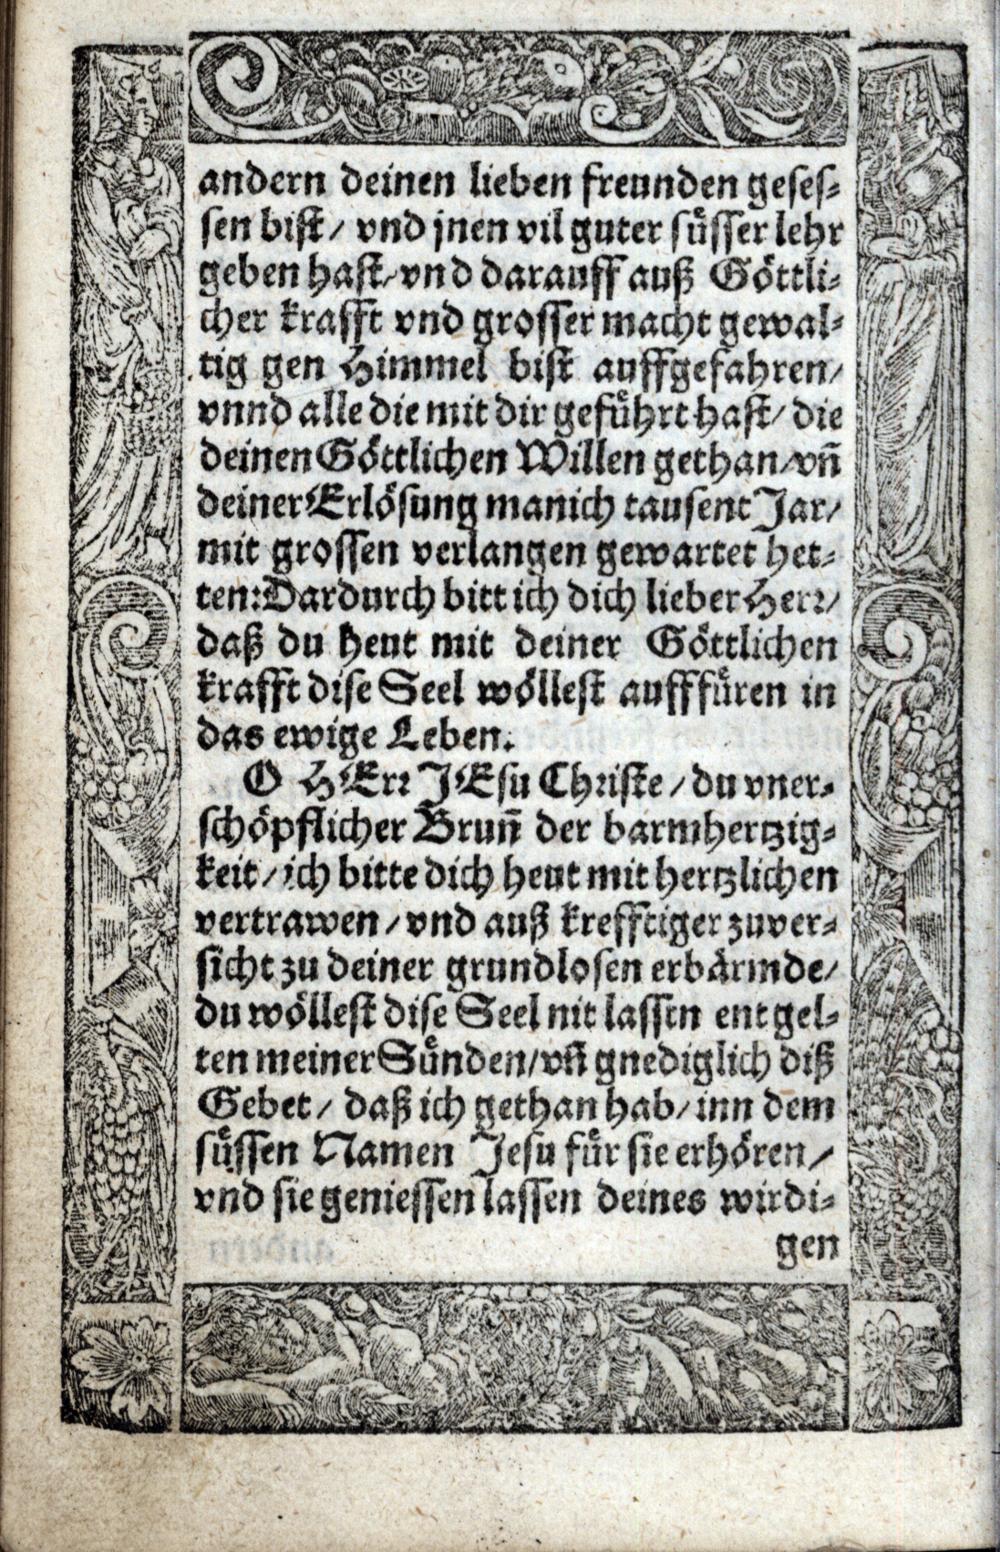 andern deinen lieben freunden geses⸗
sen bist / vnd jnen vil guter süsser lehr
geben hast / vnd darauff auß Göttli⸗
cher krafft vnd grosser macht gewal⸗
tig gen Himmel bist auffgefahren /
vnnd alle die mit dir geführt hast / die
deinen Göttlichen Willen gethan / vñ
deiner Erlösung manich tausent Jar /
mit grossen verlangen gewartet het⸗
ten: Dardurch bitt ich dich lieber Herr /
daß du heut mit deiner Göttlichen
krafft dise Seel wöllest aufffüren in
das ewige Leben.
O HErr JEsu Christe / du vner⸗
schöpflicher Bruñ der barmhertzig⸗
keit / ich bitte dich heut mit hertzlichen
vertrawen / vnd auß krefftiger zuver⸗
sicht zu deiner grundlosen erbärmde /
du wöllest dise Seel nit lassen entgel⸗
ten meiner Sünden / vñ gnediglich diß
Gebet / daß ich gethan hab / inn dem
süssen Namen Jesu für sie erhören /
vnd sie geniessen lassen deines wirdi⸗
gen